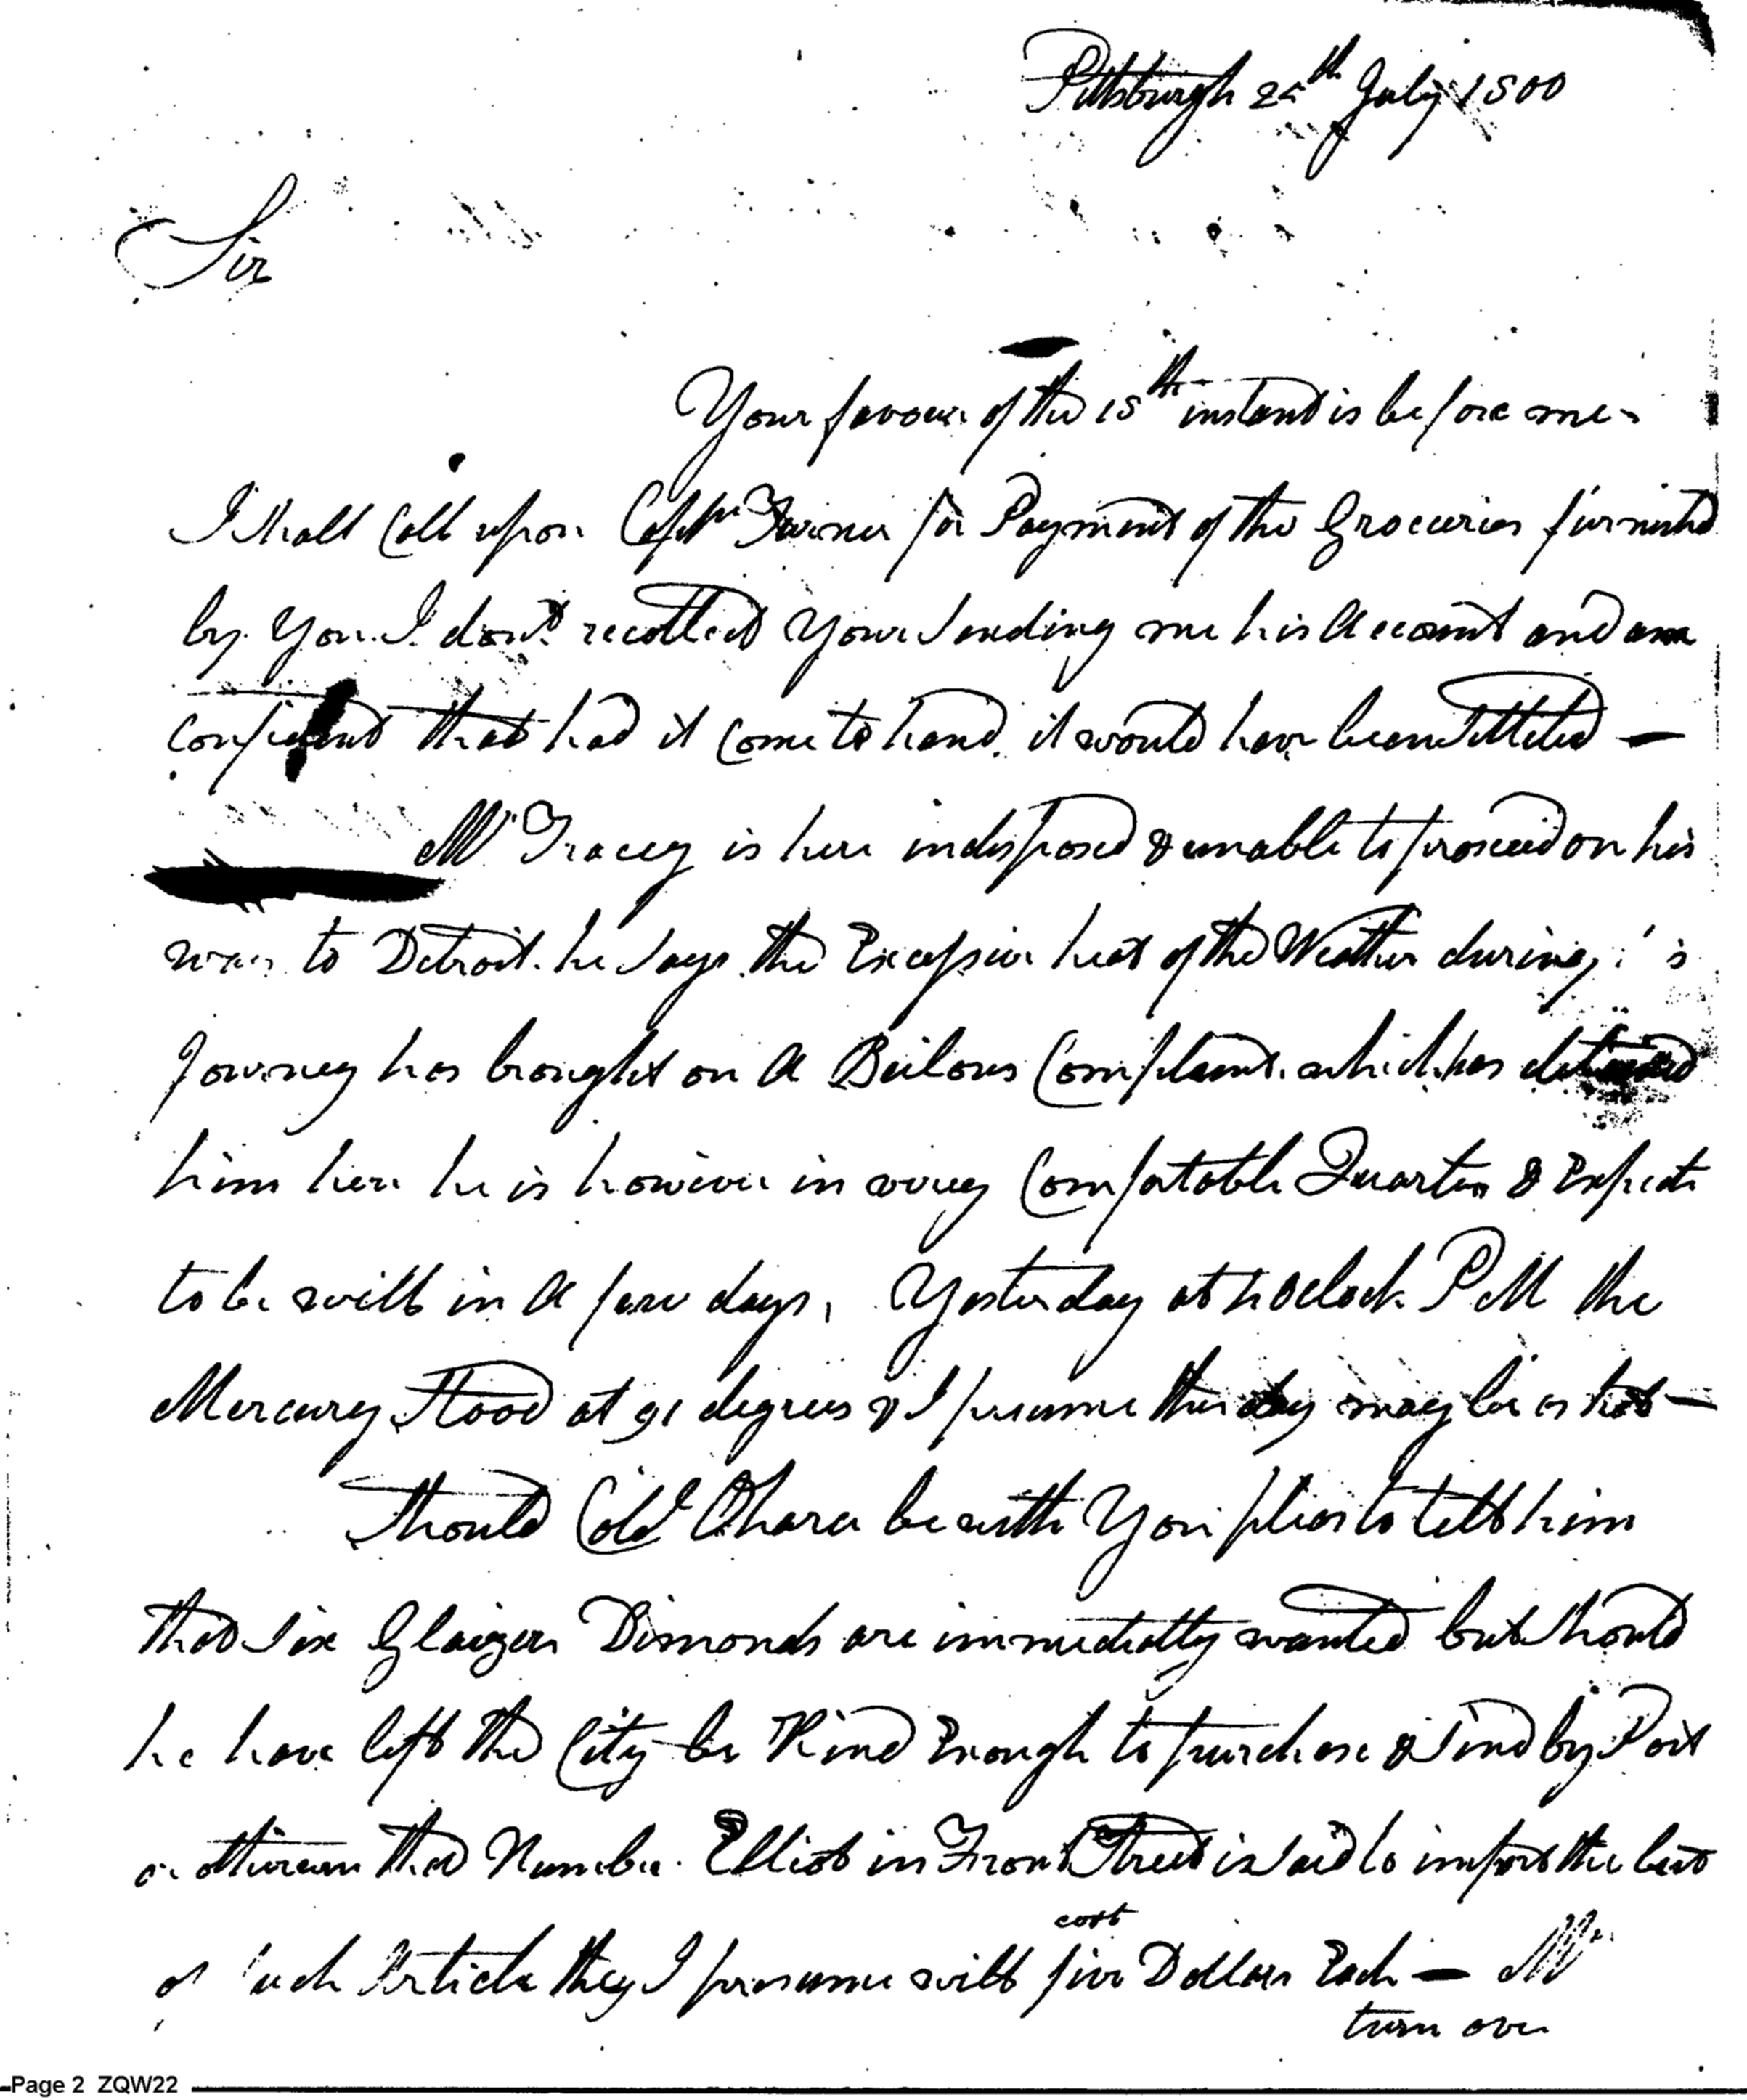 Pittsburgh 25th July 1800
Sir
Your favour of the 15th instant is before me
I shall Call upon Captn Turner for Payment of the Groceries furnishd
by You. I dont recollect Your Sending me his Account and am
Confident that had it Come to hand, it would have been Settled —
Mr Tracey is here indisposed & unable to proceed on his
way to Detroit. he Says the Excessive heat of the Weather during
Journey has brought on a Beilous Complaint. which has detained
him here he is however in very Comfortable Quarters & Expects
to be well in a few days, Yesterday at oClock PM the
Mercury Stood at 91 degrees & I presume this day may be as hot —
Should Colo Ohara be with You please to tell him
that Six Glaizers Dimonds are immediatly wanted but Should
he have left the City be Kind Enough to purchase & Send by Post
or otherwise that Number. Elliot in Front Street is Said to import the best
of Such Article they I presume will cost five Dollars Each — Mr
turn over
Page 2 ZQW22